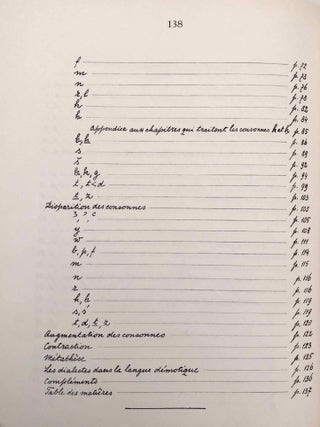 138
f p. 72
m p. 73
n p. 76
r, l p. 78
h p. 82
ḥ p. 84
Appendice aux chapitres qui traitent les consonnes h et ḥ p. 85
p. 86
s p. 89
š p. 92
q p. 94
p. 99
p. 103
Disparition des consonnes p. 105
p. 105
y p. 108
w p. 111
b, p, f p. 114
m p. 115
n p. 116
r p. 116
p. 119
s, ś p. 119
p. 120
Augmentation des consonnes p. 122
Contraction p. 123
Métathèse p. 125
Les dialectes dans la langue démotique p. 126
Compléments p. 130
Table des matières p. 137